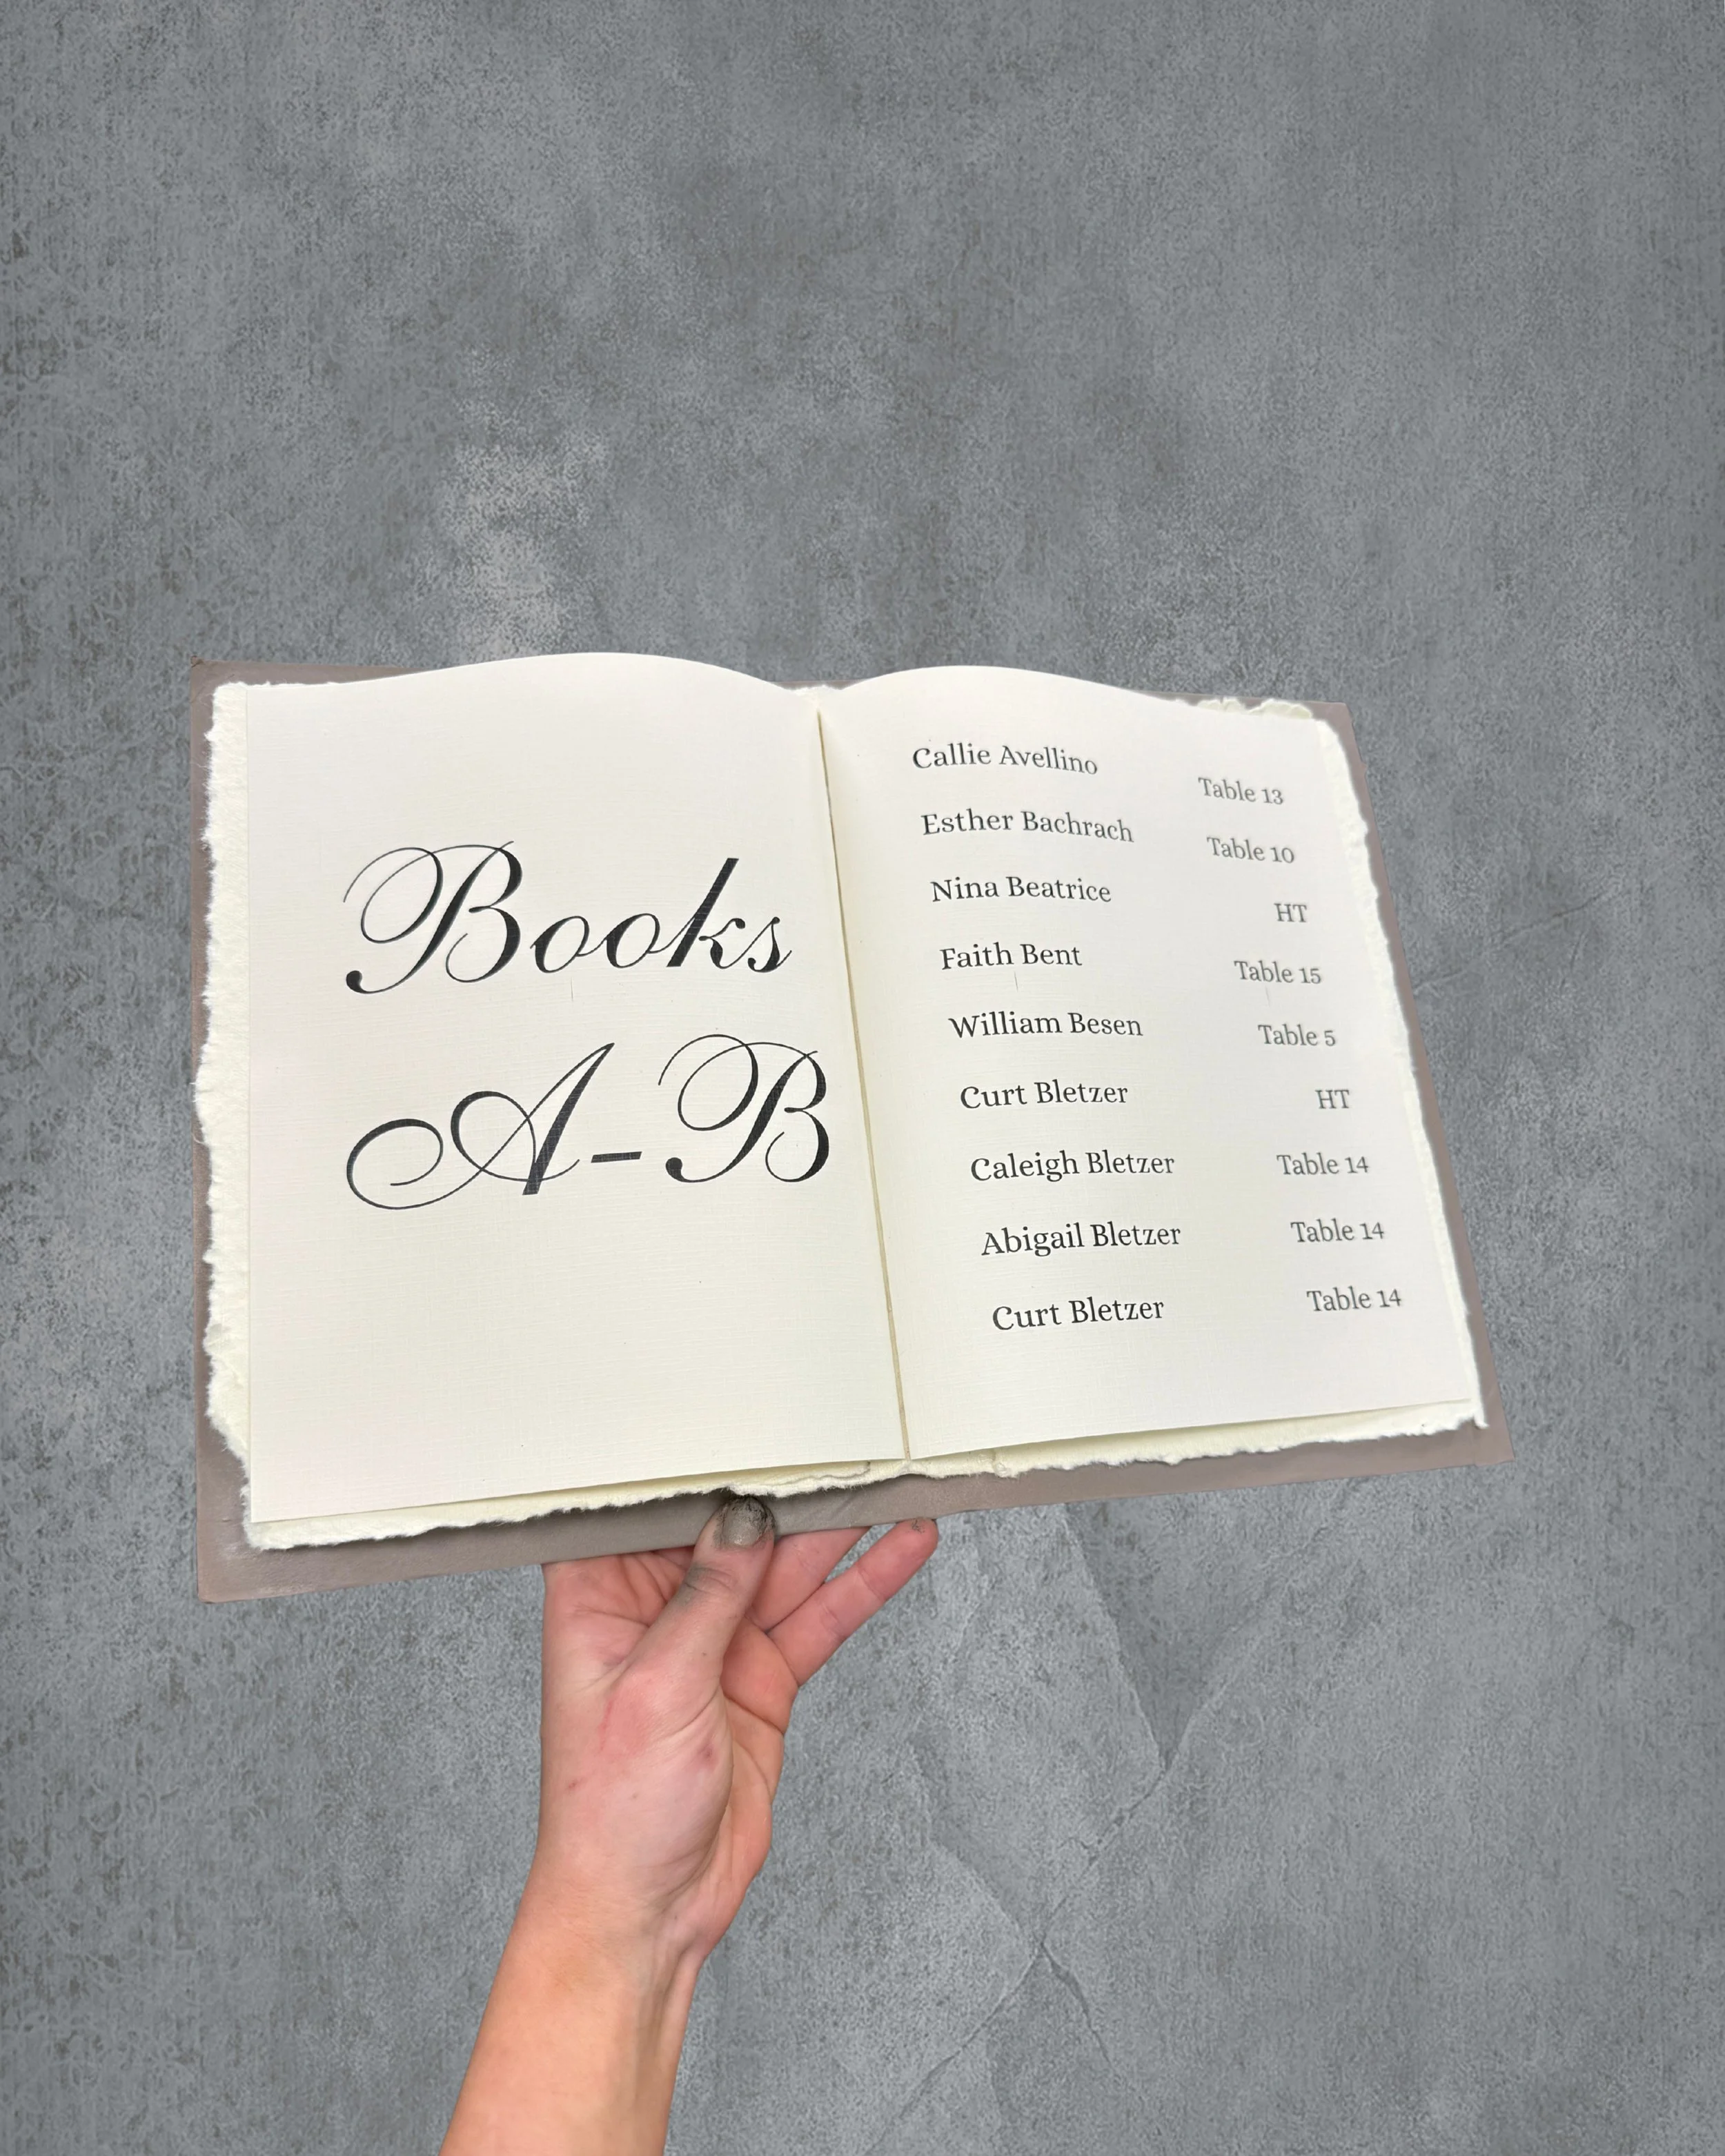 Books
A-B
Callie Avellino Table 13
Esther Bachrach Table 10
Nina Beatrice HT
Faith Bent Table 15
William Besen Table 5
Curt Bletzer HT
Caleigh Bletzer Table 14
Abigail Bletzer Table 14
Curt Bletzer Table 14